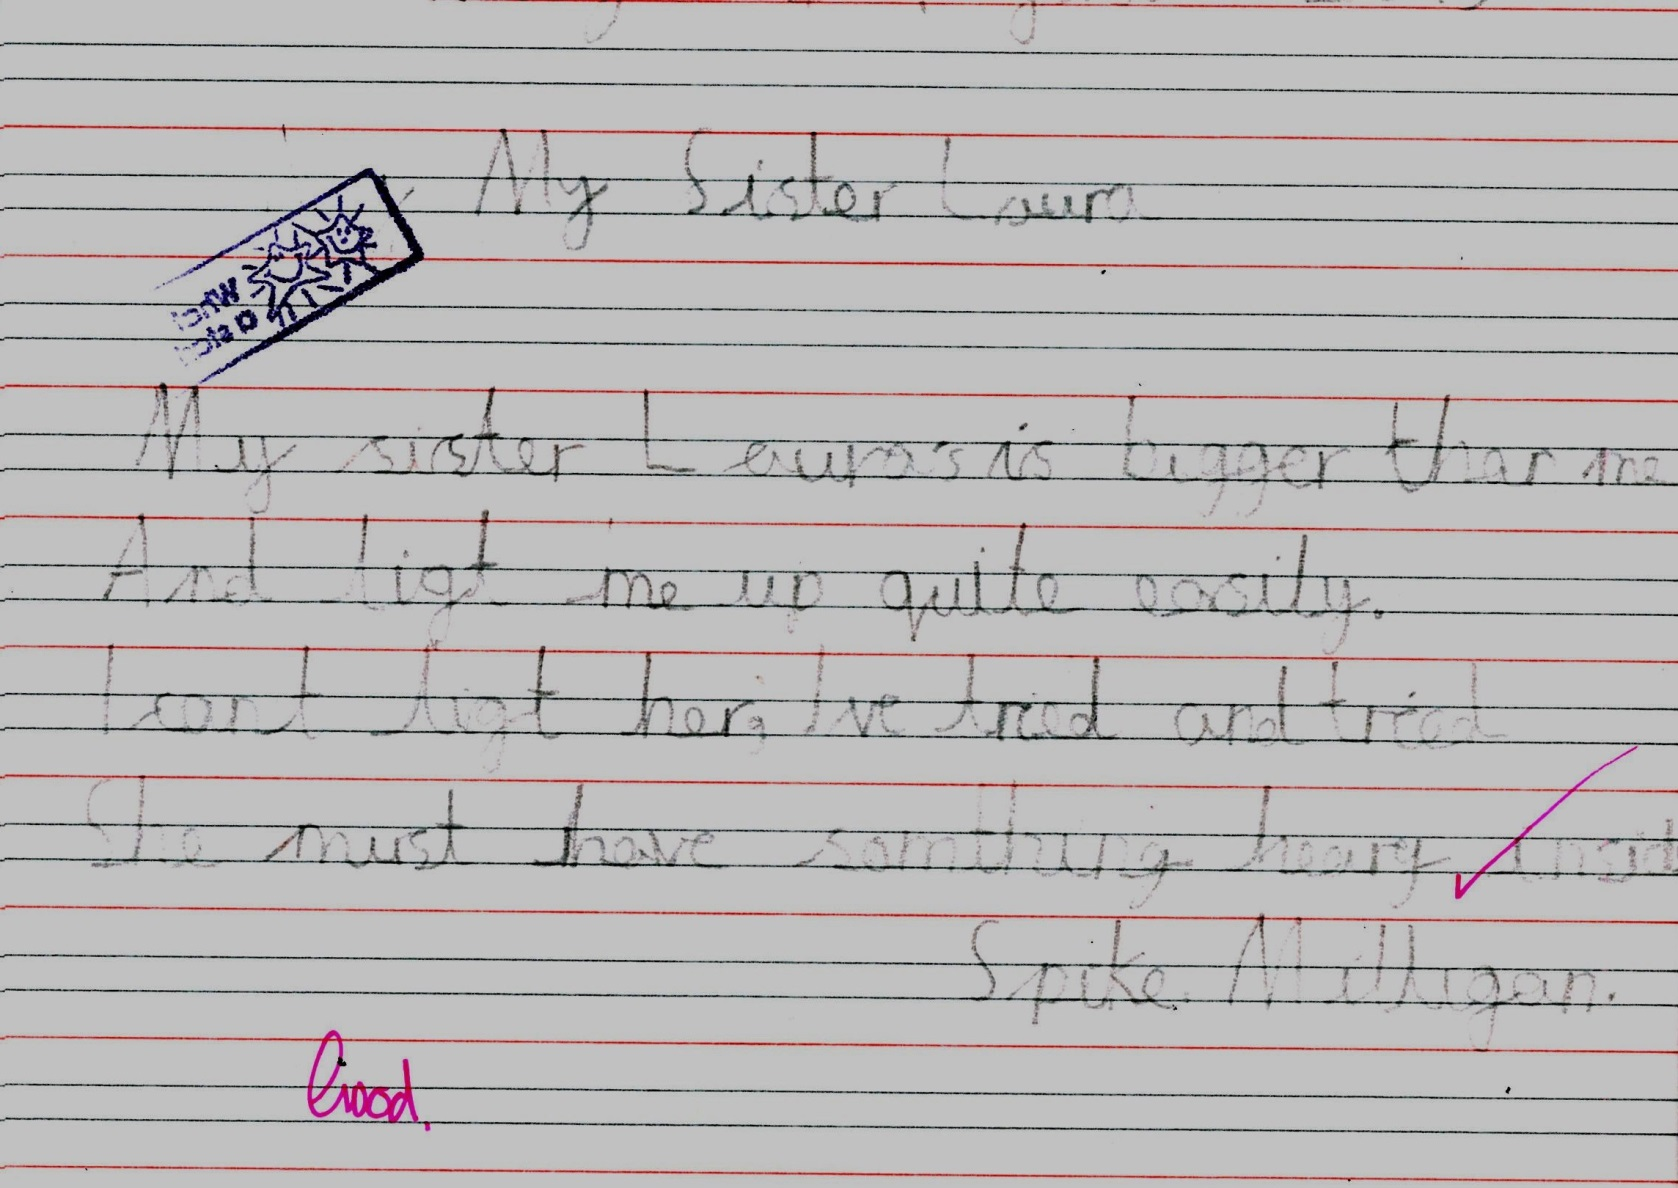 My Sister Laura
My sister Laura's is bigger than me
And ligt me up quite easily.
I cant ligt her, I've tried and tried
She must have somthing heavy insid
Spike Milligan.
Good.